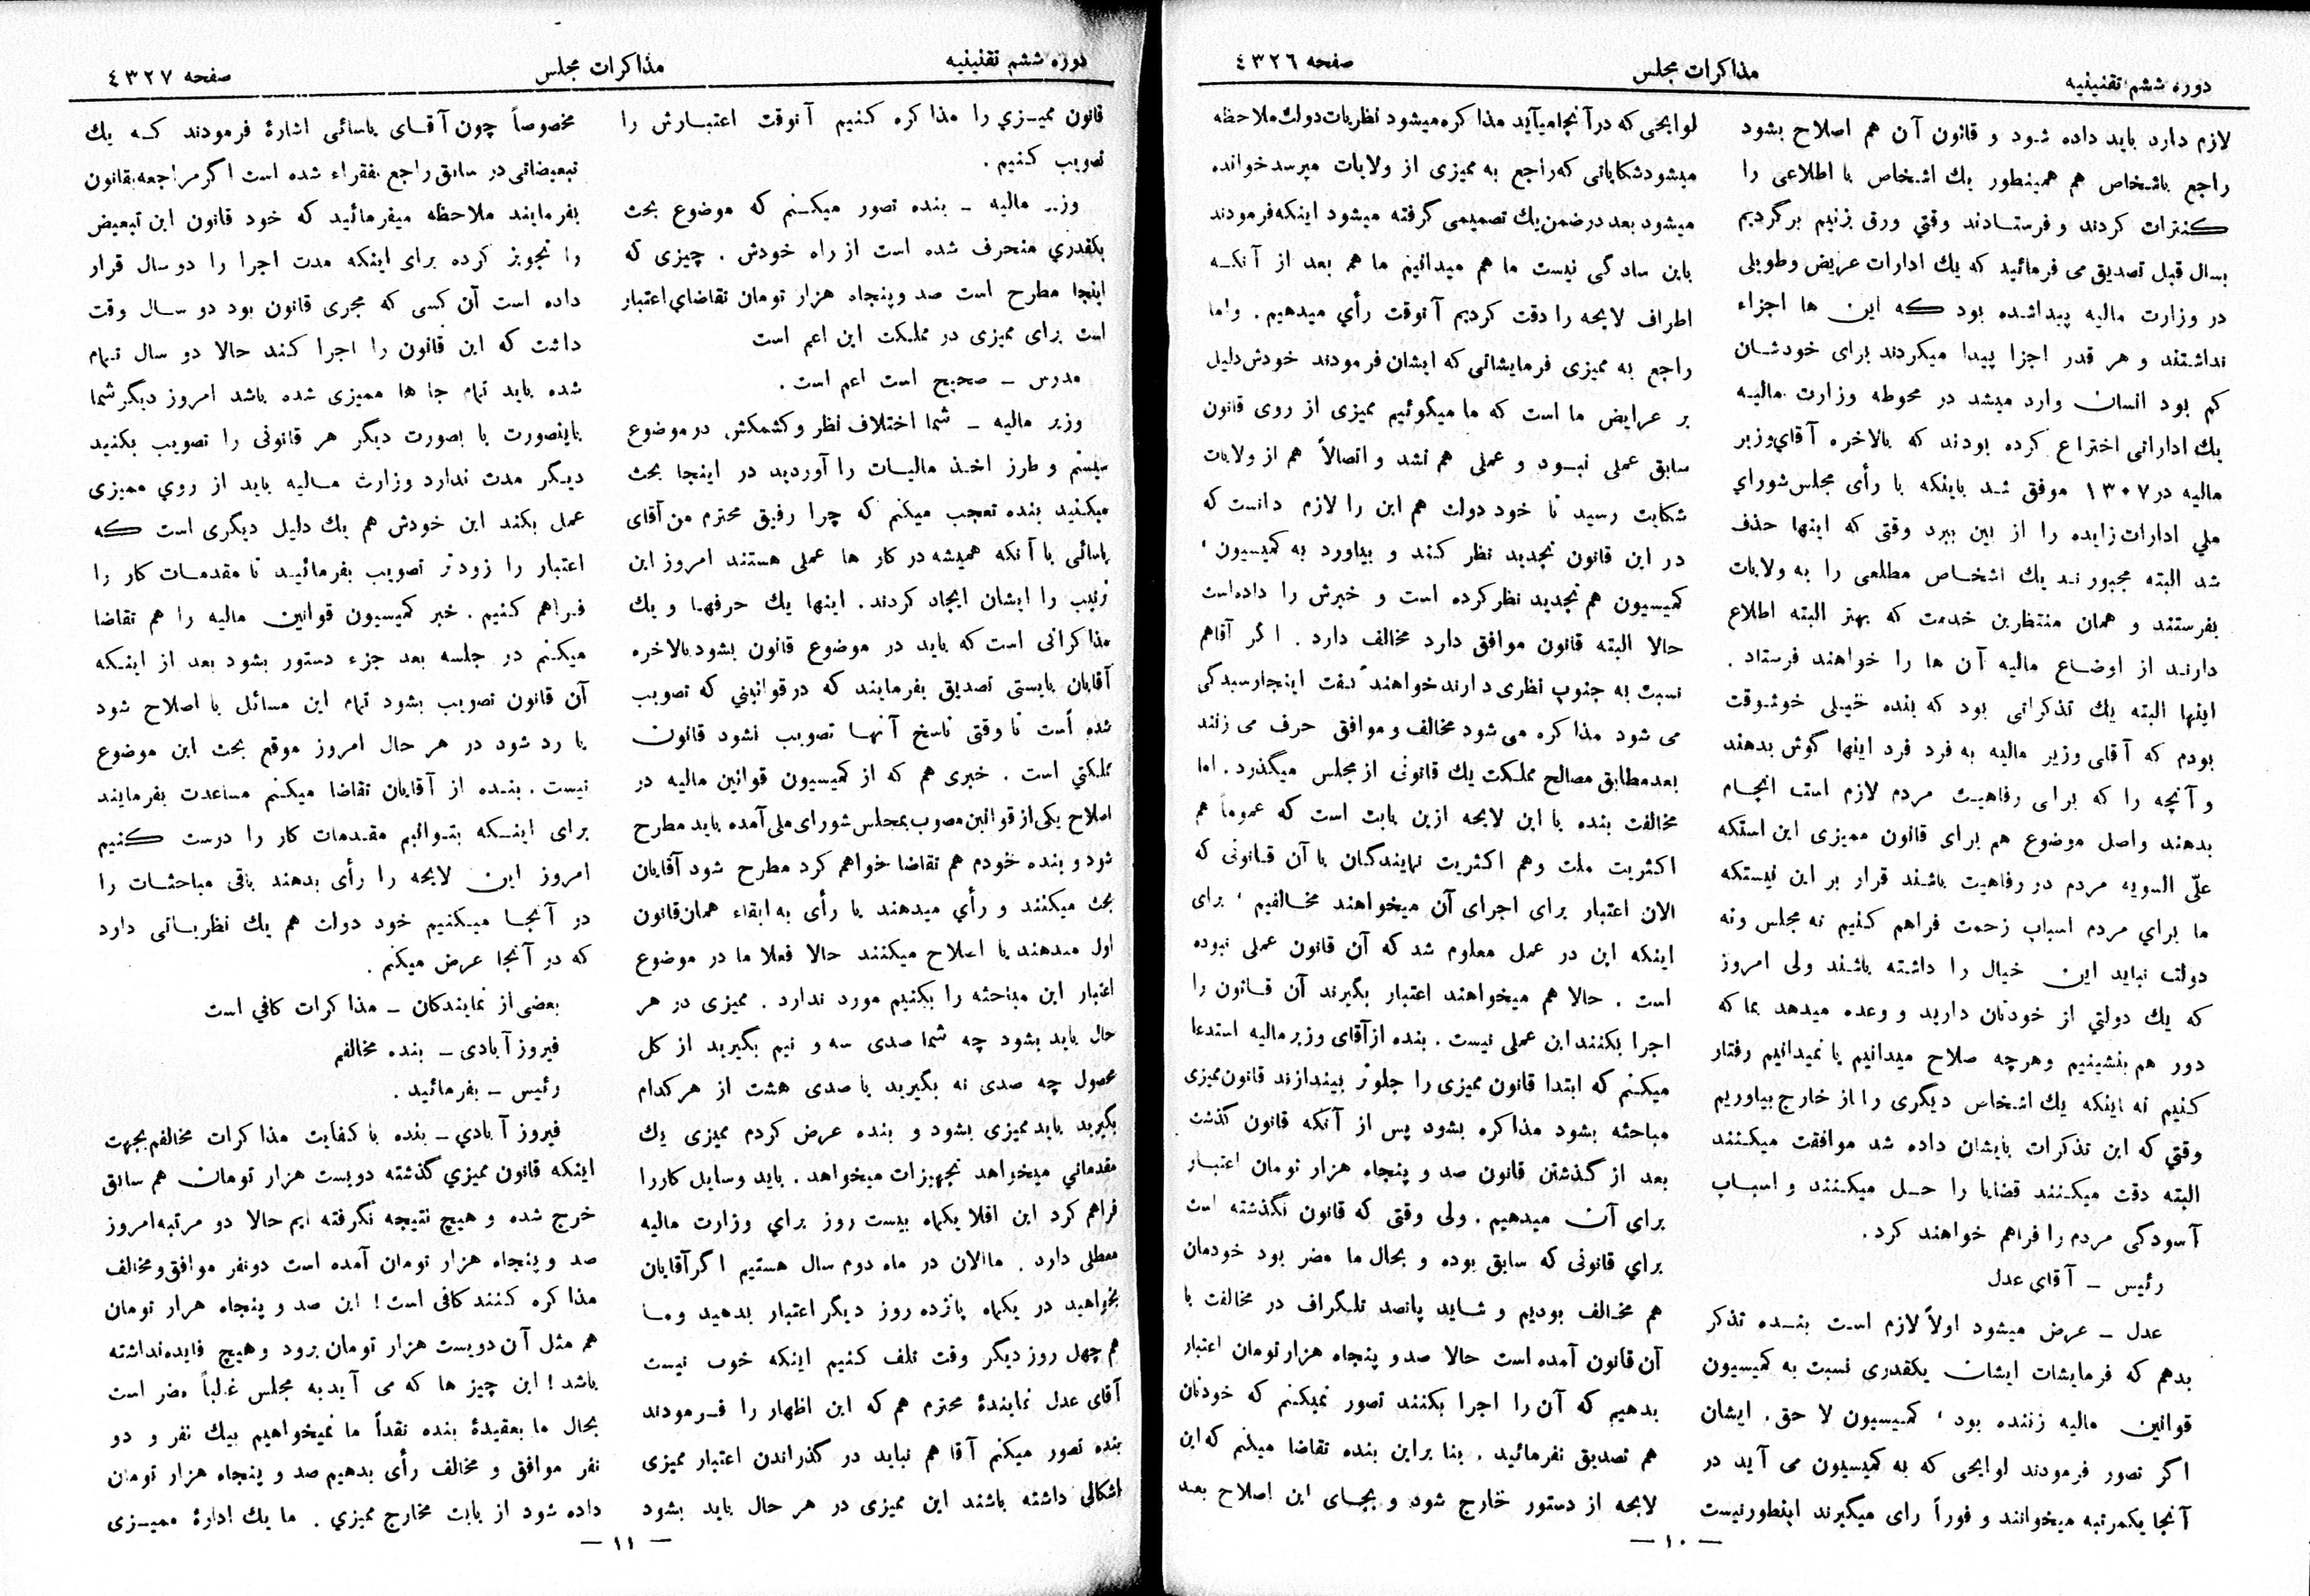 دوره ششم تقنینیه
مذاکرات مجلس
صفحه ٤٣٢٦
لازم دارد باید داده شود و قانون آن هم اصلاح بشود
راجع باشخاص هم همینطور یك اشخاص با اطلاعی را
کنترات کردند و فرستادند وقتي ورق بزنیم برگردیم
بسال قبل تصدیق می فرمائید که یك ادارات عریض وطویلی
در وزارت مالیه پیداشده بود که این ها اجزاء
نداشتند و هر قدر اجزا پیدا میکردند برای خودشان
کم بود انسان وارد میشد در محوطه وزارت مالیه
یك اداراتی اختراع کرده بودند که بالاخره آقاي وزیر
مالیه در ١٣٠٧ موفق شد باینکه با رأی مجلس شوراي
ملي ادارات زایده را از بین ببرد وقتی که اینها حذف
شد البته مجبورند یك اشخاص مطلعی را به ولایات
بفرستند و همان منتظرین خدمت که بهتر البته اطلاع
دارند از اوضاع مالیه آن ها را خواهند فرستاد .
اینها البته یك تذکراتی بود که بنده خیلی خوشوقت
بودم که آقای وزیر مالیه به فرد فرد اینها گوش بدهند
و آنچه را که برای رفاهیت مردم لازم است انجام
بدهند واصل موضوع هم برای قانون ممیزی این استکه
علی السویه مردم در رفاهیت باشند قرار بر این نیستکه
ما براي مردم اسباب زحمت فراهم کنیم نه مجلس ونه
دولت نباید این خیال را داشته باشند ولی امروز
که یك دولتي از خودتان دارید و وعده میدهد بما که
دور هم بنشینیم وهرچه صلاح میدانیم یا نمیدانیم رفتار
کنیم نه اینکه یك اشخاص دیگری را از خارج بیاوریم
وقتي که این تذکرات بایشان داده شد موافقت میکنند
البته دقت میکنند قضایا را حل میکنند و اسباب
آسودگی مردم را فراهم خواهند کرد .
رئیس ـ آقای عدل
عدل ـ عرض میشود اولاً لازم است بنده تذکر
بدهم که فرمایشات ایشان یکقدری نسبت به کمیسیون
قوانین مالیه زننده بود ، کمیسیون لا حق . ایشان
اگر تصور فرمودند لوایحی که به کمیسیون می آید در
آنجا یکمرتبه میخوانند و فوراً رای میگیرند اینطورنیست
لوایحی که در آنجا میآید مذاکره میشود نظریات دولت ملاحظه
میشود شکایاتی که راجع به ممیزی از ولایات میرسد خوانده
میشود بعد در ضمن یك تصمیمی گرفته میشود اینکه فرمودند
باین سادگی نیست ما هم میدانیم ما هم بعد از آنکه
اطراف لایحه را دقت کردیم آنوقت رأي میدهیم . واما
راجع به ممیزی فرمایشاتی که ایشان فرمودند خودش دلیل
بر عرایض ما است که ما میگوئیم ممیزی از روی قانون
سابق عملی نبود و عملی هم نشد و اتصالاً هم از ولایات
شکایت رسید تا خود دولت هم این را لازم دانست که
در این قانون تجدید نظر کند و بیاورد به کمیسیون ،
کمیسیون هم تجدید نظر کرده است و خبرش را داده است
حالا البته قانون موافق دارد مخالف دارد . اگر آقاهم
نسبت به جنوب نظری دارند خواهند گفت اینجا رسیدگی
می شود مذاکره می شود مخالف و موافق حرف می زنند
بعد مطابق مصالح مملکت یك قانونی از مجلس میگذرد . اما
مخالفت بنده با این لایحه ازین بابت است که عموماً هم
اکثریت ملت وهم اکثریت نمایندگان با آن قانونی که
الان اعتبار برای اجرای آن میخواهند مخالفیم ، برای
اینکه این در عمل معلوم شد که آن قانون عملی نبوده
است . حالا هم میخواهند اعتبار بگیرند آن قانون را
اجرا بکنند این عملی نیست . بنده از آقای وزیر مالیه استدعا
میکنم که ابتدا قانون ممیزی را جلوتر بیندازند قانون ممیزی
مباحثه بشود مذاکره بشود پس از آنکه قانون گذشت
بعد از گذشتن قانون صد و پنجاه هزار تومان اعتبار
برای آن میدهیم . ولی وقتی که قانون نگذشته است
براي قانونی که سابق بوده و بحال ما مضر بود خودمان
هم مخالف بودیم و شاید پانصد تلگراف در مخالفت با
آن قانون آمده است حالا صد و پنجاه هزار تومان اعتبار
بدهیم که آن را اجرا بکنند تصور نمیکنم که خودتان
هم تصدیق نفرمائید . بنا براین بنده تقاضا میکنم که این
لایحه از دستور خارج شود و بجای این اصلاح بعد
ـ ١٠ ـ
دوره ششم تقنینیه
مذاکرات مجلس
صفحه ٤٣٢٧
قانون ممیزي را مذاکره کنیم آنوقت اعتبارش را
تصویب کنیم .
وزیر مالیه ـ بنده تصور میکنم که موضوع بحث
یکقدري منحرف شده است از راه خودش . چیزی که
اینجا مطرح است صد و پنجاه هزار تومان تقاضاي اعتبار
است برای ممیزی در مملکت این اعم است
مدرس ـ صحیح است اعم است .
وزیر مالیه ـ شما اختلاف نظر و کشمکش در موضوع
سیستم و طرز اخذ مالیات را آوردید در اینجا بحث
میکنید بنده تعجب میکنم که چرا رفیق محترم من آقای
یاسائی با آنکه همیشه در کار ها عملی هستند امروز این
ترتیب را ایشان ایجاد کردند . اینها یك حرفها و یك
مذاکراتی است که باید در موضوع قانون بشود بالاخره
آقایان بایستی تصدیق بفرمایند که در قوانینی که تصویب
شده است تا وقتی ناسخ آنها تصویب نشود قانون
مملکتي است . خبری هم که از کمیسیون قوانین مالیه در
اصلاح یکی از قوانین مصوب بمجلس شورای ملی آمده باید مطرح
شود و بنده خودم هم تقاضا خواهم کرد مطرح شود آقایان
بحث میکنند و رأي میدهند یا رأی به ابقاء همان قانون
اول میدهند یا اصلاح میکنند حالا فعلا ما در موضوع
اعتبار این مباحثه را بکنیم مورد ندارد . ممیزی در هر
حال باید بشود چه شما صدی سه و نیم بگیرید از کل
محصول چه صدی نه بگیرید یا صدی هشت از هر کدام
بگیرید باید ممیزی بشود و بنده عرض کردم ممیزی یك
مقدماتي میخواهد تجهیزات میخواهد . باید وسایل کاررا
فراهم کرد این اقلا یکماه بیست روز براي وزارت مالیه
معطلی دارد . ما الان در ماه دوم سال هستیم اگر آقایان
بخواهید در یکماه پانزده روز دیگر اعتبار بدهید وما
هم چهل روز دیگر وقت تلف کنیم اینکه خوب نیست
آقای عدل نمایندهٔ محترم هم که این اظهار را فرمودند
بنده تصور میکنم آقا هم نباید در گذراندن اعتبار ممیزی
اشکالی داشته باشند این ممیزی در هر حال باید بشود
مخصوصاً چون آقای یاسائی اشارهٔ فرمودند که یك
تبعیضاتی در سابق راجع بفقراء شده است اگر مراجعه بقانون
بفرمایند ملاحظه میفرمائید که خود قانون این تبعیض
را تجویز کرده برای اینکه مدت اجرا را دو سال قرار
داده است آن کسی که مجری قانون بود دو سال وقت
داشت که این قانون را اجرا کند حالا دو سال تمام
شده باید تمام جا ها ممیزی شده باشد امروز دیگر شما
باینصورت یا بصورت دیگر هر قانونی را تصویب بکنید
دیگر مدت ندارد وزارت مالیه باید از روي ممیزی
عمل بکند این خودش هم یك دلیل دیگری است که
اعتبار را زودتر تصویب بفرمائید تا مقدمات کار را
فراهم کنیم . خبر کمیسیون قوانین مالیه را هم تقاضا
میکنم در جلسه بعد جزء دستور بشود بعد از اینکه
آن قانون تصویب بشود تمام این مسائل یا اصلاح شود
یا رد شود در هر حال امروز موقع بحث این موضوع
نیست . بنده از آقایان تقاضا میکنم مساعدت بفرمایند
برای اینکه بتوانیم مقدمات کار را درست کنیم
امروز این لایحه را رأی بدهند باقی مباحثات را
در آنجا میکنیم خود دولت هم یك نظریاتی دارد
که در آنجا عرض میکنم .
بعضی از نمایندگان ـ مذاکرات کافي است
فیروز آبادی ـ بنده مخالفم
رئیس ـ بفرمائید .
فیروز آبادي ـ بنده با کفایت مذاکرات مخالفم بجهت
اینکه قانون ممیزي گذشته دویست هزار تومان هم سابق
خرج شده و هیچ نتیجه نگرفته ایم حالا دو مرتبه امروز
صد و پنجاه هزار تومان آمده است دونفر موافق و مخالف
مذاکره کنند کافی است ! این صد و پنجاه هزار تومان
هم مثل آن دویست هزار تومان برود و هیچ فایده نداشته
باشد ! این چیز ها که می آید به مجلس غالباً مضر است
بحال ما بعقیدهٔ بنده نقداً ما نمیخواهیم بیك نفر و دو
نفر موافق و مخالف رأی بدهیم صد و پنجاه هزار تومان
داده شود از بابت مخارج ممیزي . ما یك ادارهٔ ممیزی
ـ ١١ ـ